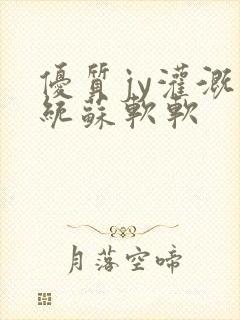 優質jy灌溉
統蘇軟軟
月落空啼